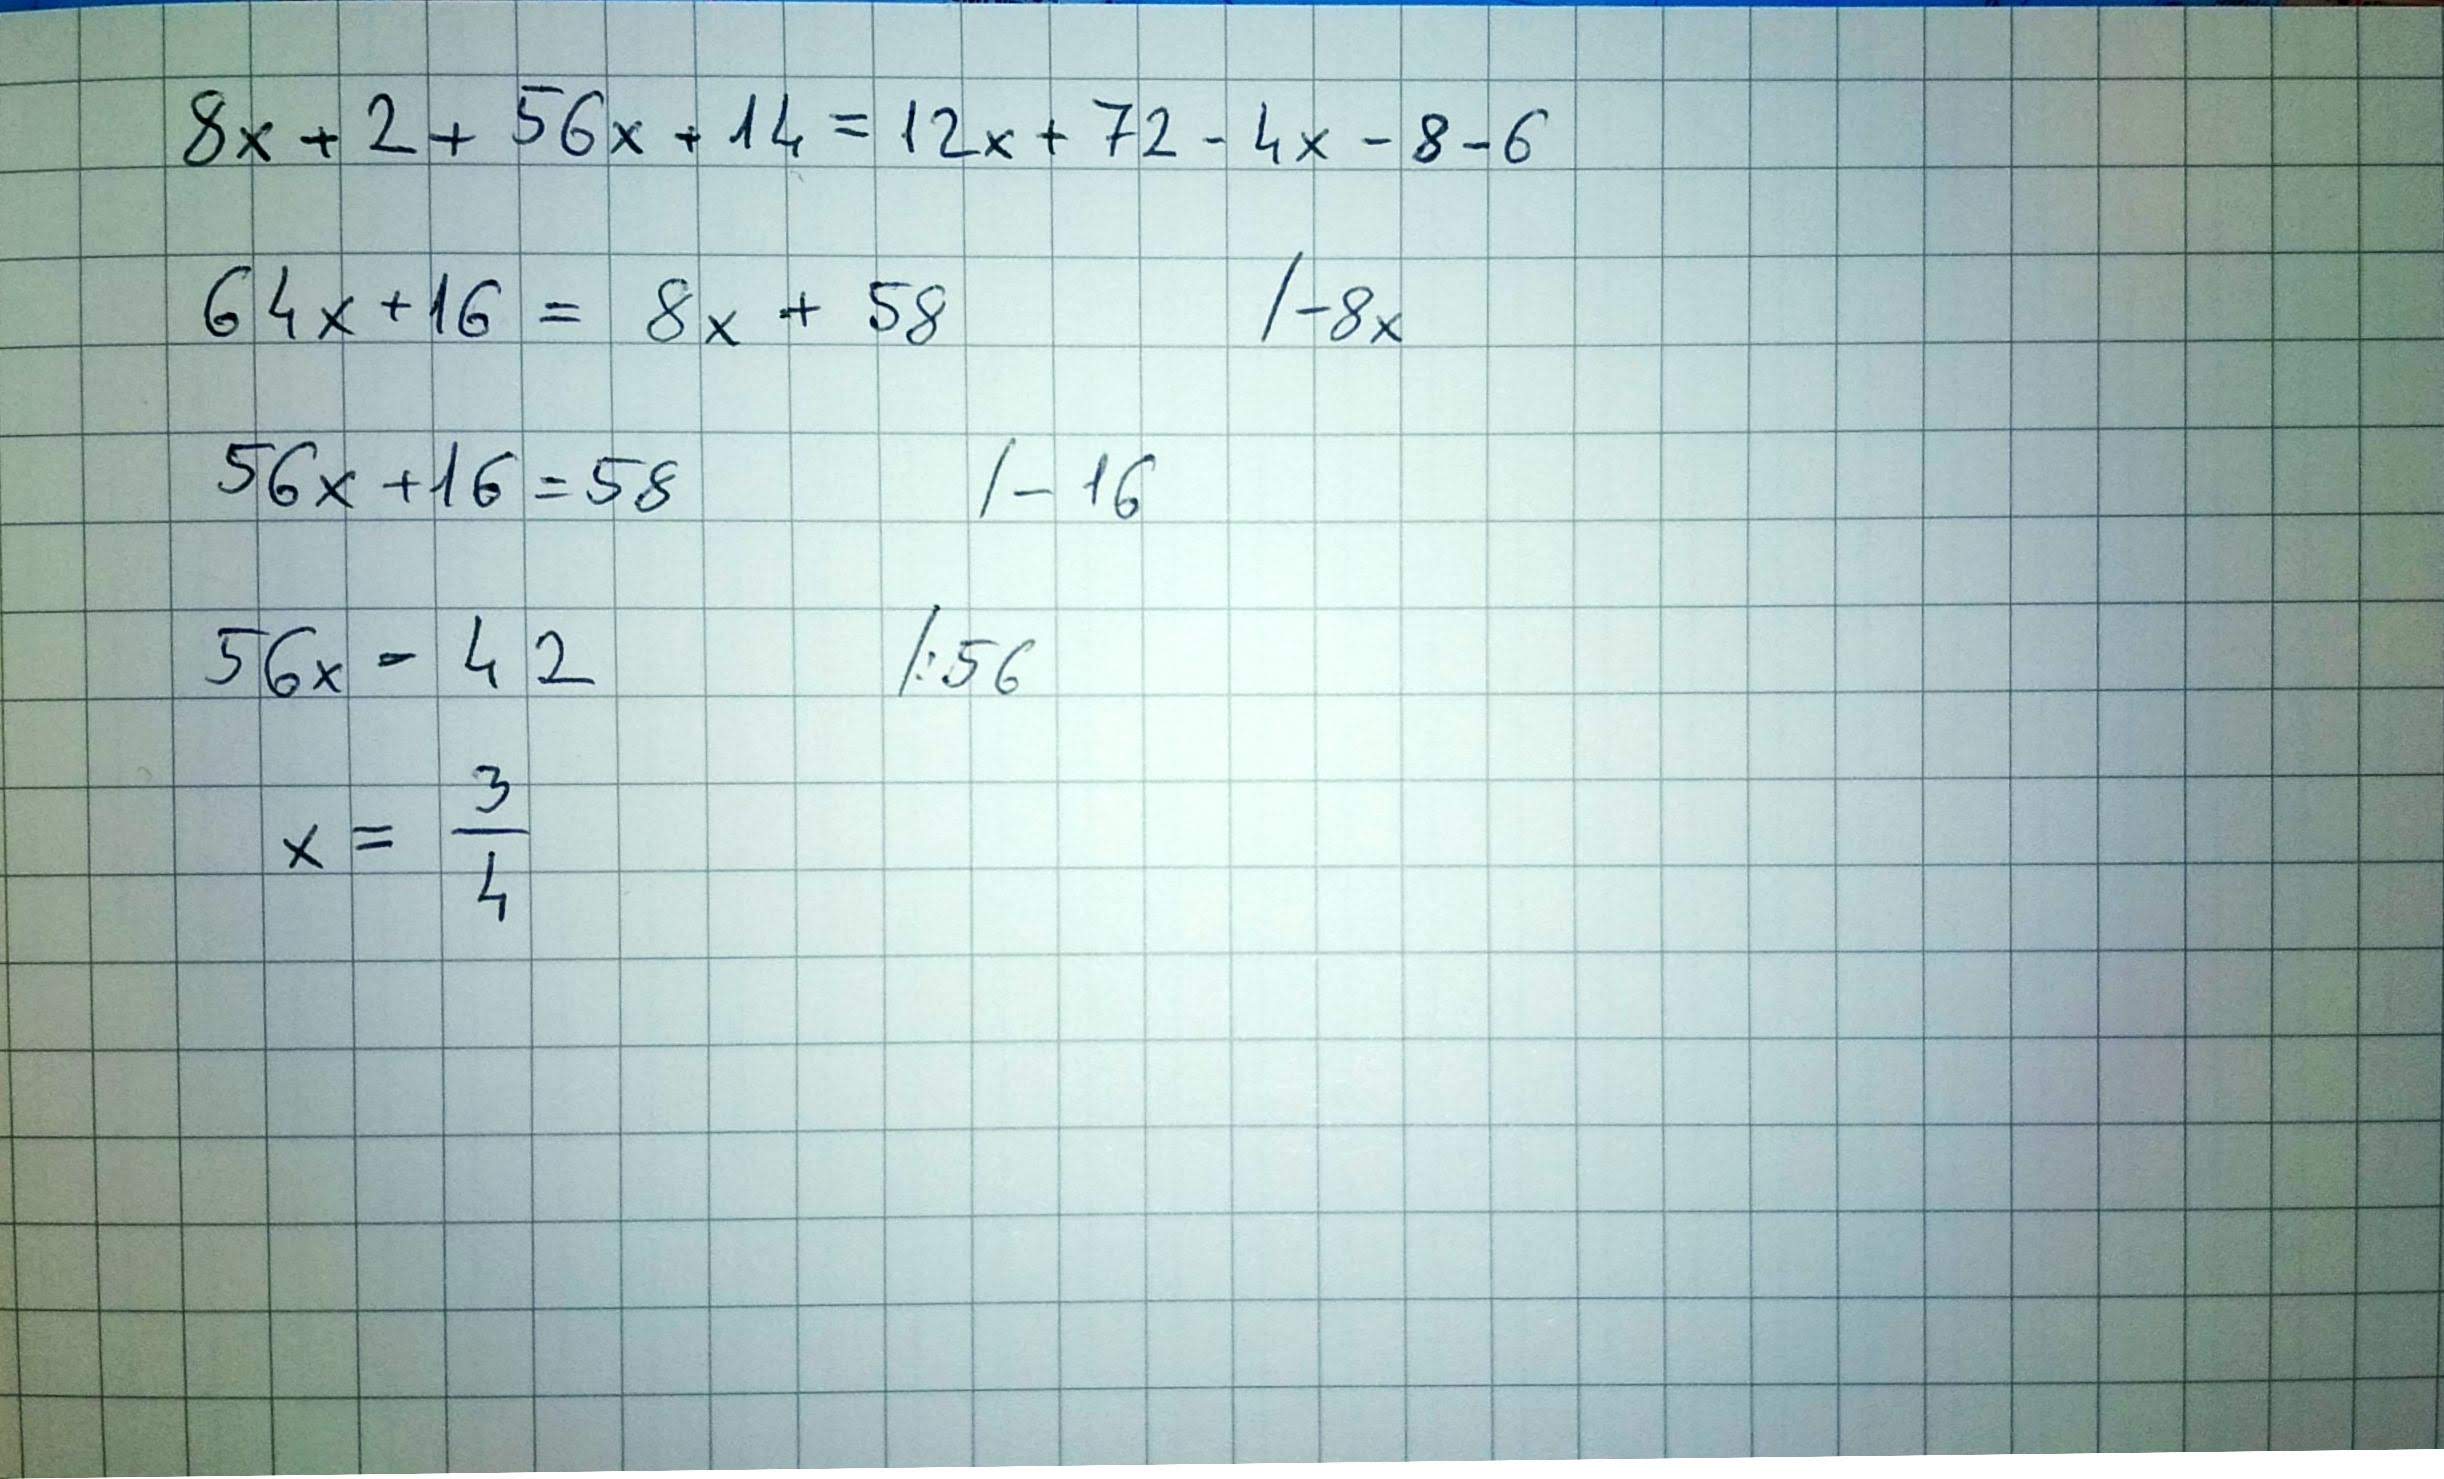 8x + 2 + 56x + 14 = 12x + 72 - 4x - 8 - 6
64x + 16 = 8x + 58 /-8x
56x + 16 = 58 /- 16
56x - 42 /:56
x = 3/4